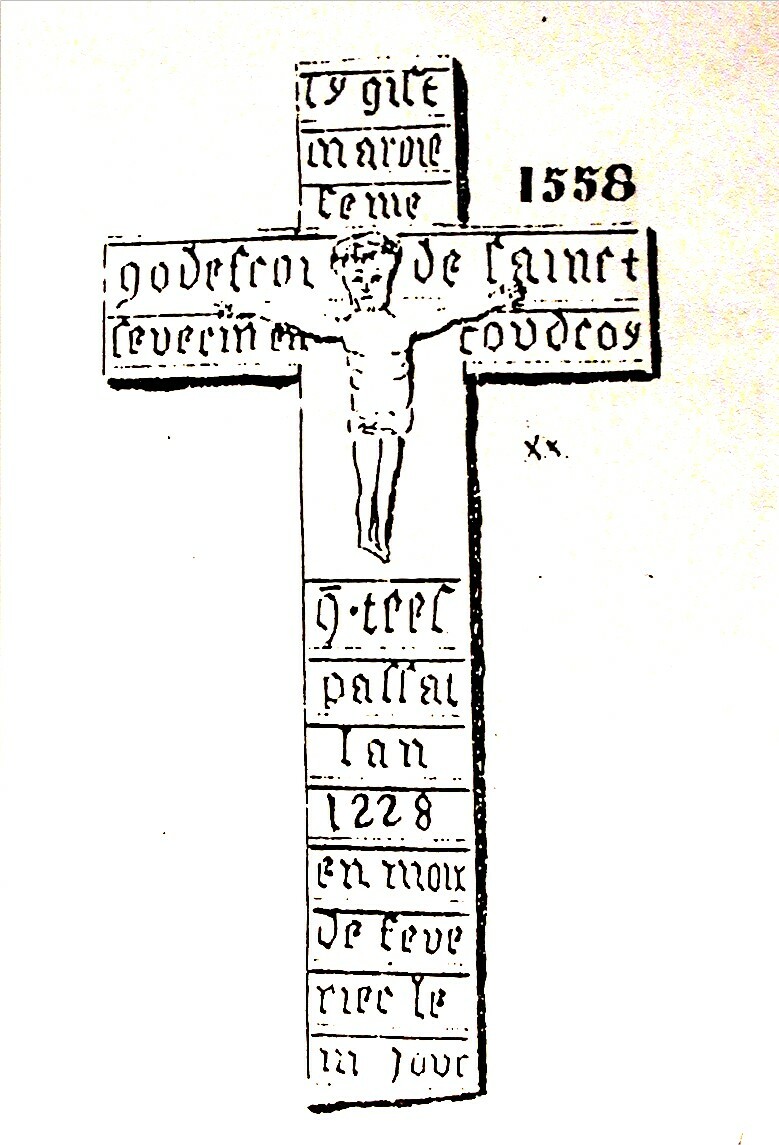 cy gist
maroie
feme
1558
godefroi de sainct
severin en condroy
q̄·tres
passat
lan
1228
en moix
de feve
rier le
iii jour
xx.